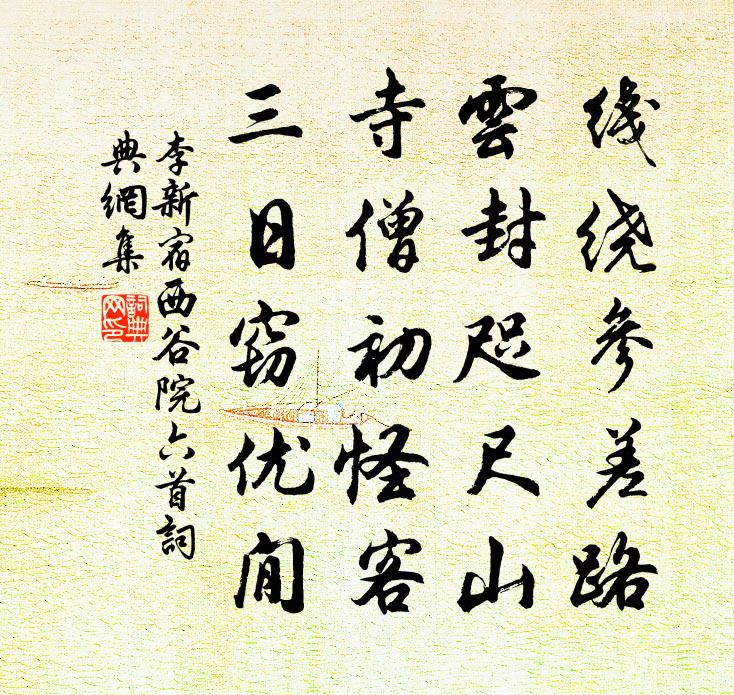 线绕参差路
雲封咫尺山
寺僧初怪客
三日窃优闲
李新宿西谷院六首詞
典網集
詞典網印